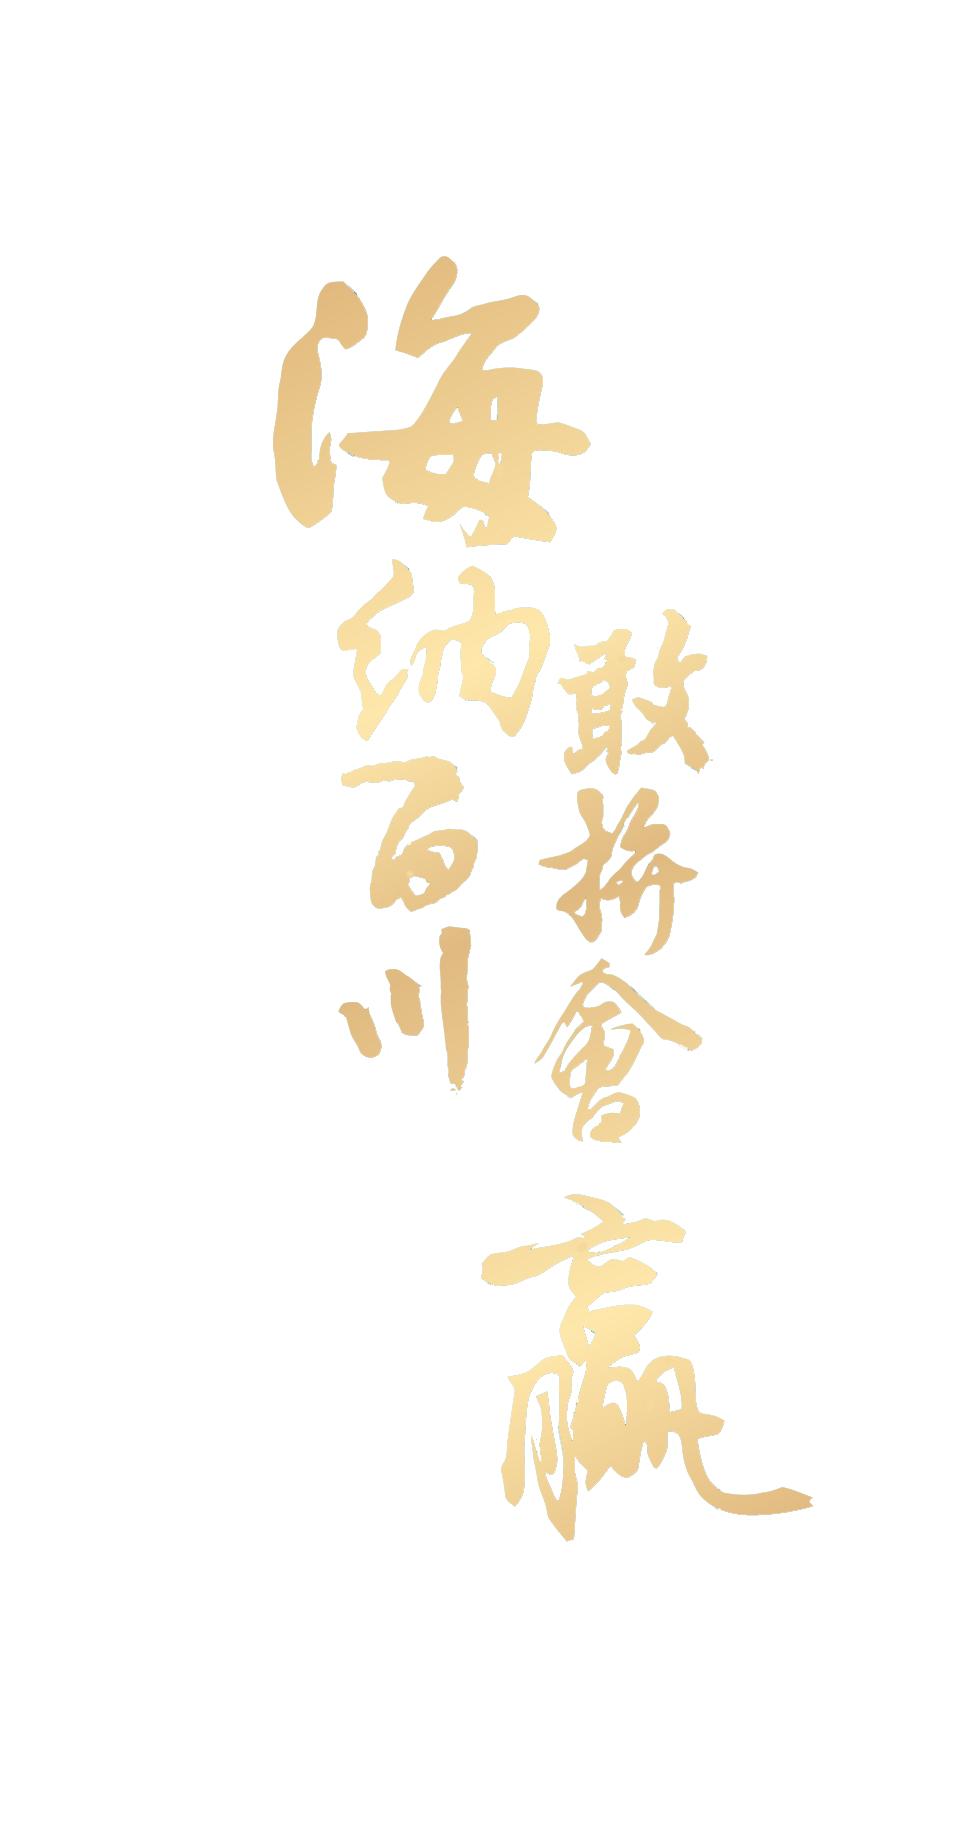 海纳百川
敢拚會赢